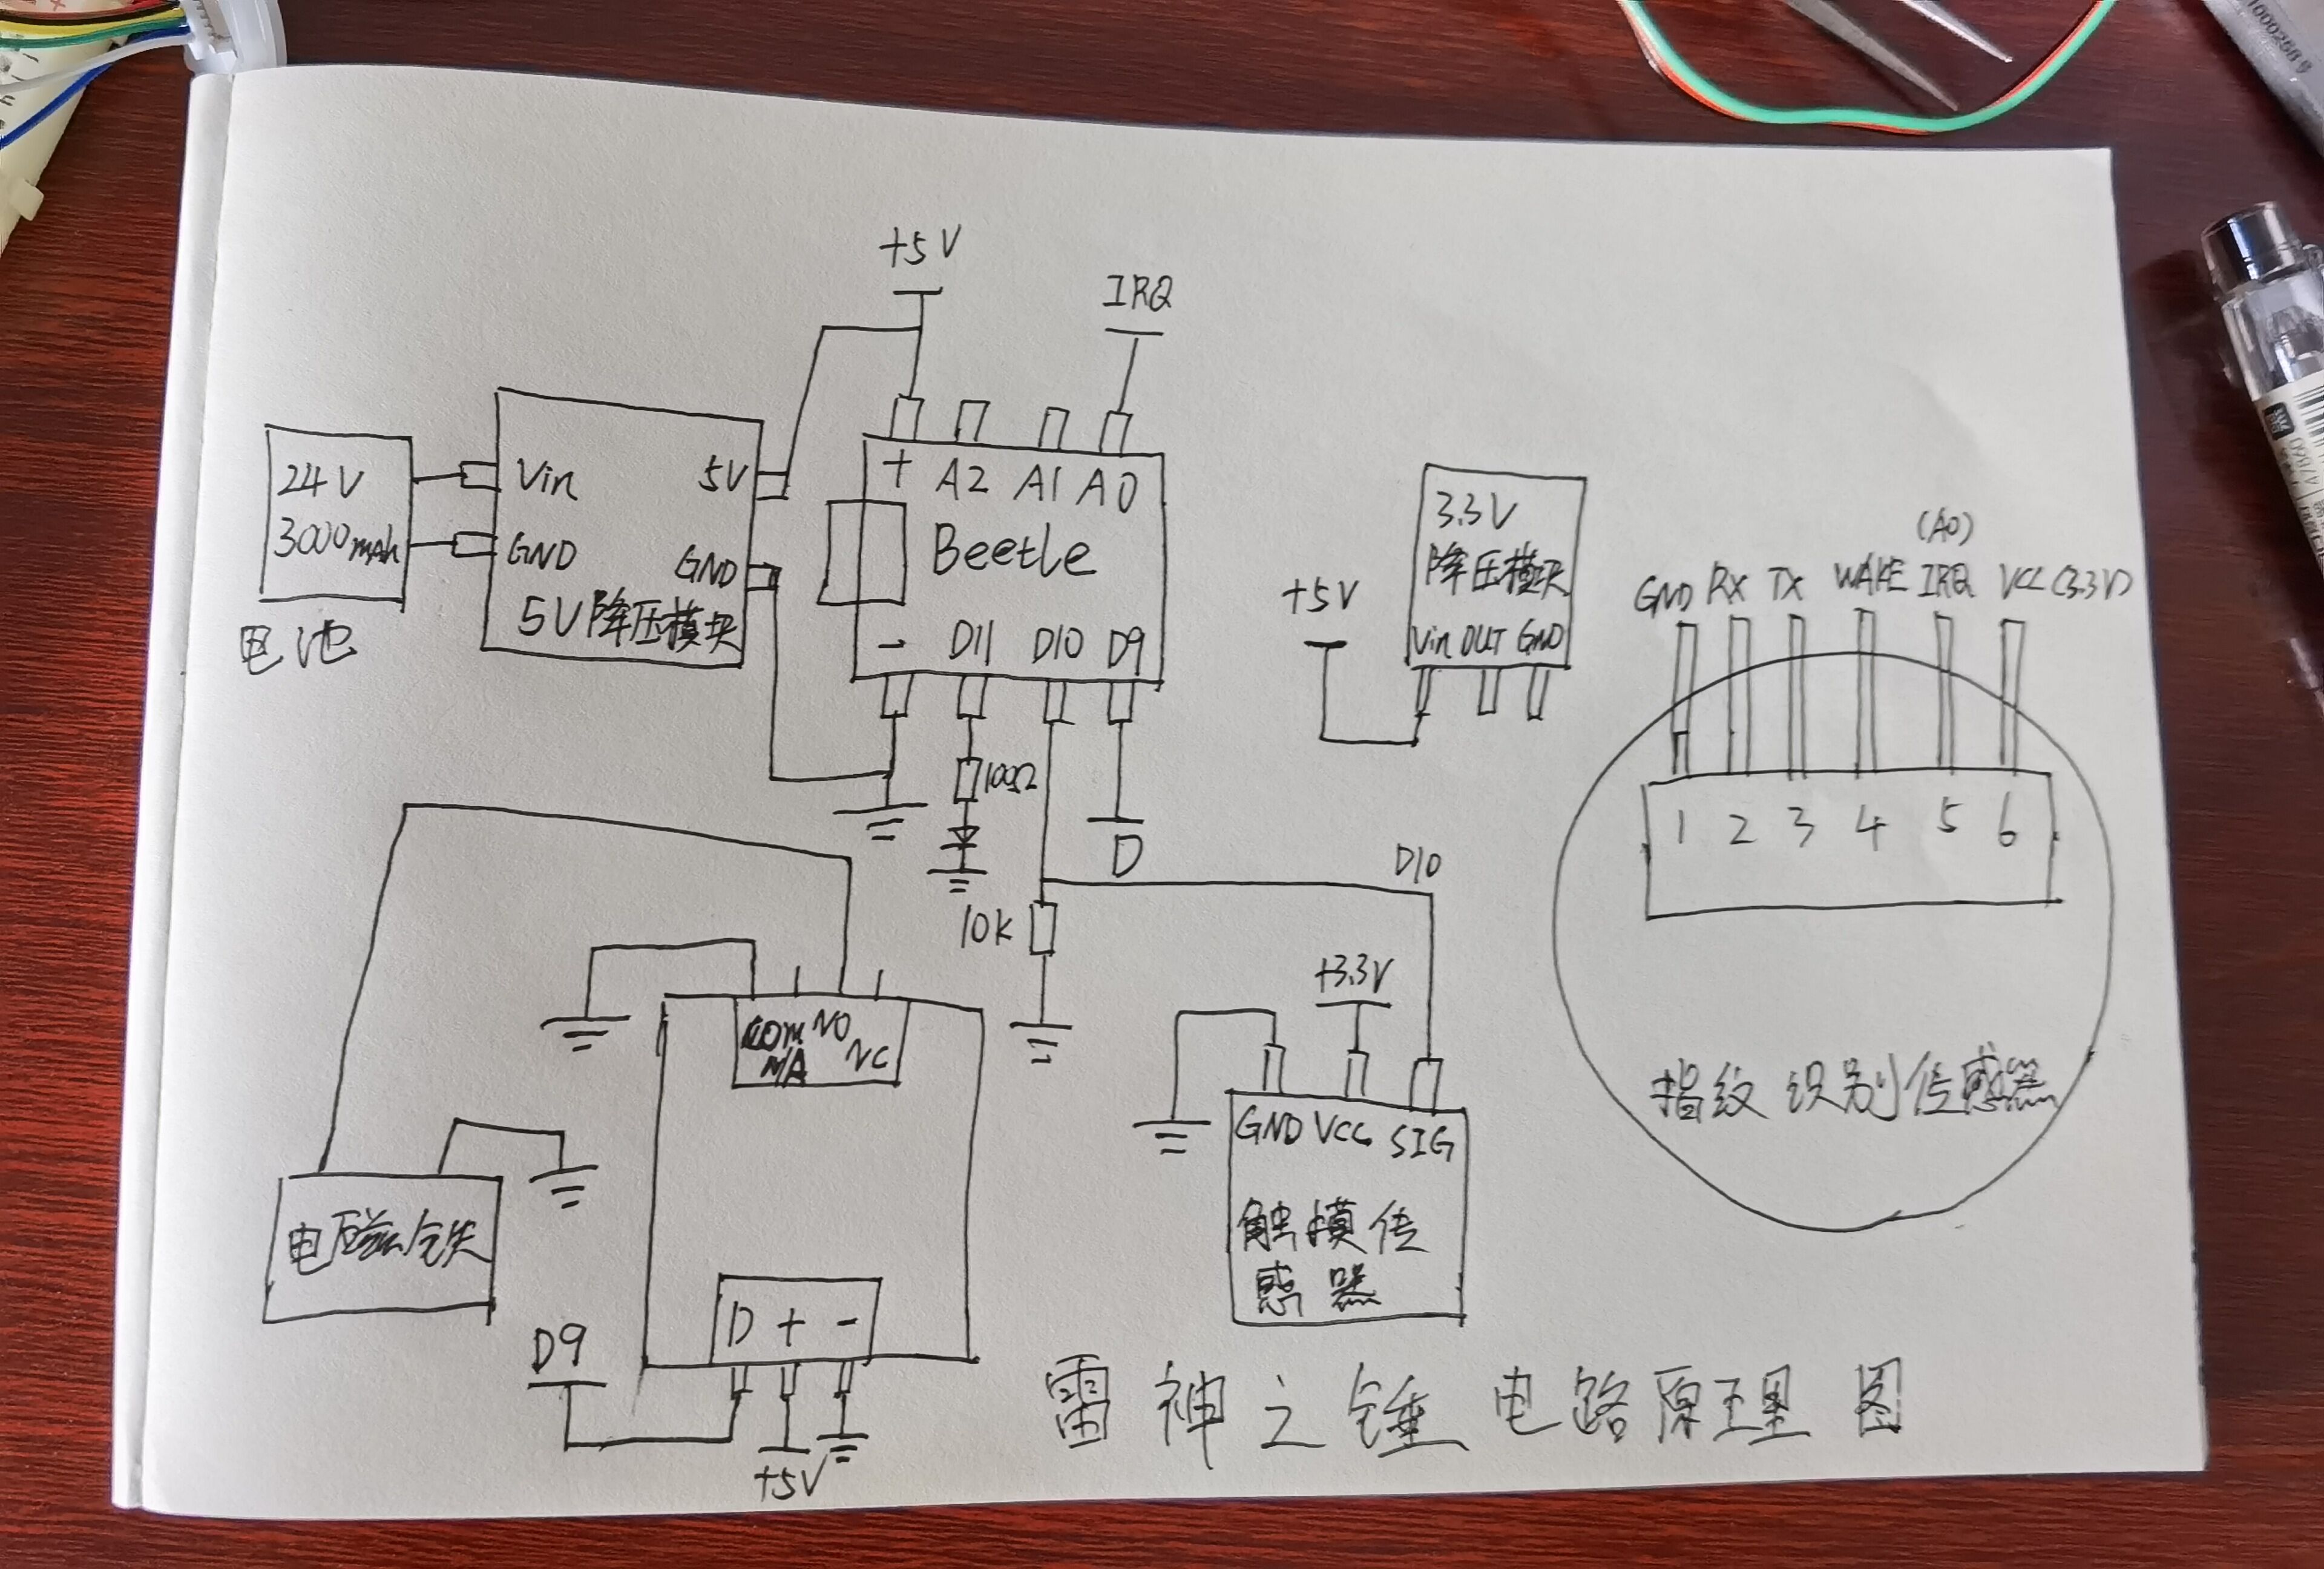 +5V
IRQ
24V
3000mAh
电池
Vin
5V
GND
GND
5V降压模块
+ A2 A1 A0
Beetle
- D11 D10 D9
100Ω
D
10K
D10
3.3V
降压模块
Vin OUT GND
+5V
(A0)
GND RX TX WAKE IRQ VCC (3.3V)
1 2 3 4 5 6
指纹识别传感器
COM NO
N/A NC
电磁铁
D + -
D9
+5V
+3.3V
GND VCC SIG
触摸传
感器
雷神之锤电路原理图